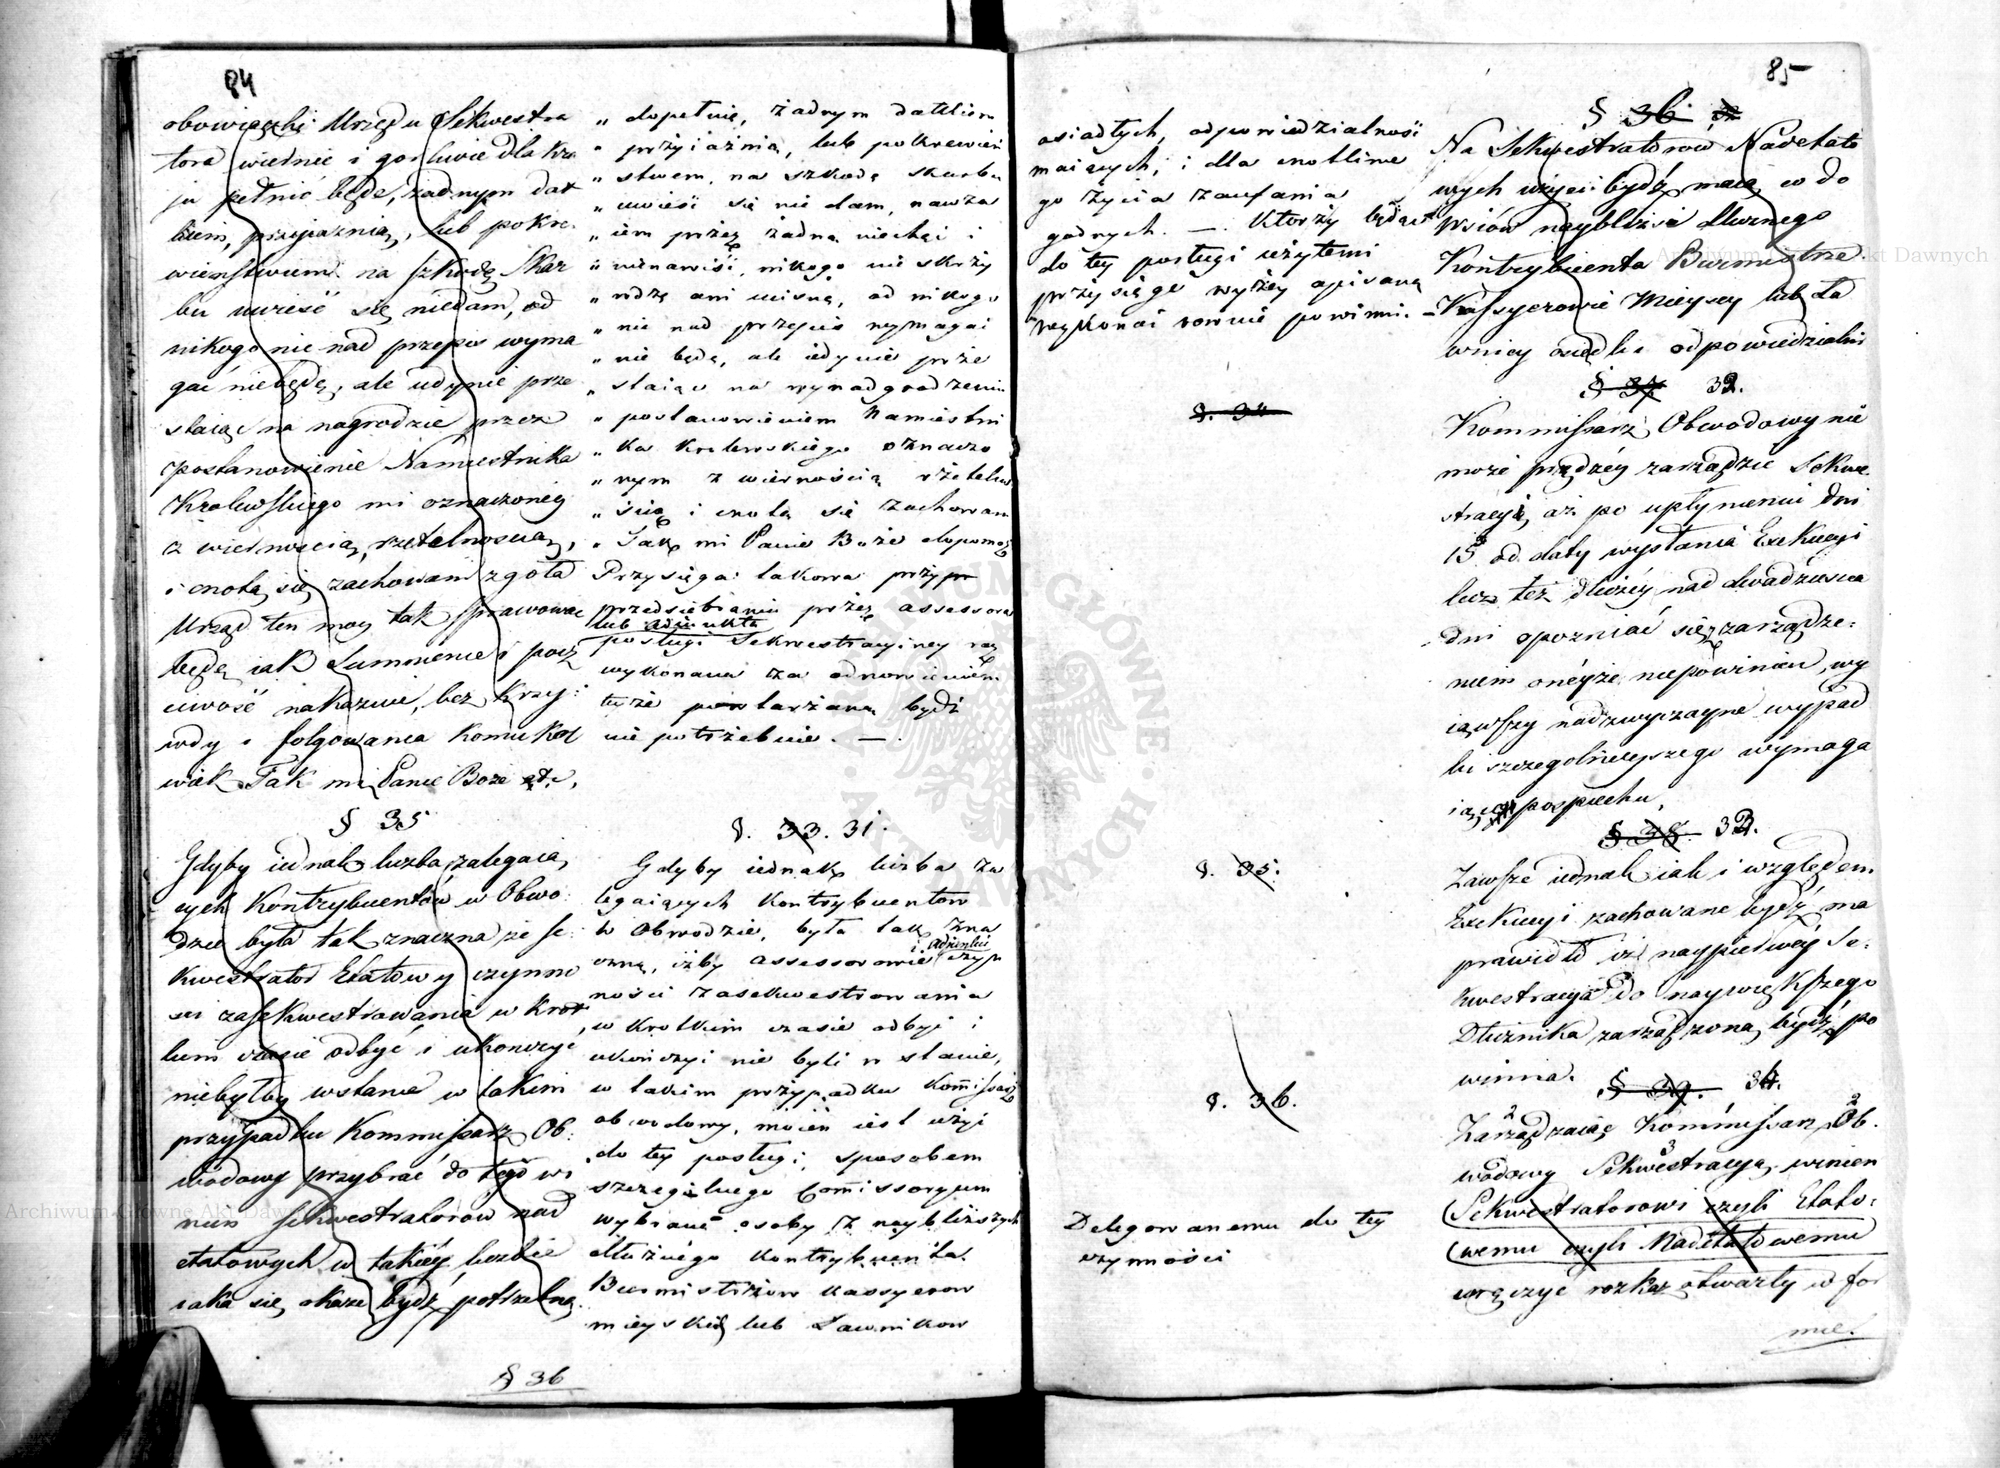 84
obowiązki Urzędu Sekwestra
tora wiernie i gorliwie dla kra
ju pełnić będę, żadnym dat
kiem, przyjaźnią, lub pokre-
wieństwem na szkodę Skar
bu uwieść się niedam, od
nikogo nic nad przepis wyma
gać niebędę, ale iedynie prze
staiąc na nagrodzie przez
postanowienie Namiestnika
Krolewskiego mi oznaczoney
z wiernością, rzetelnością,
i cnotą się zachowam zgoła
Urząd ten moy tak sprawować
będę iak Summienie i pocz
ciwość nakazuie, bez krzy-
wdy i folgowania komukol
wiek Tak mi Panie Boże etc.
§ 35
Gdyby iednak liczba zalegaią
cych Kontrybuentów w Obwo-
dzie była tak znaczna że Se-
kwestrator Etatowy czynno
ści zasekwestrowania w krot
kim czasie odbyć i ukończyć
niebyłby wstanie w takim
przypadku Kommissarz Ob-
wodowy przybrać do tego wi
nien Sekwestratorów nad
etatowych w takiey liczbie
iaka się okaże bydź potrzebną
„ dopełnię, żadnym datkiem
„ przyiaźnią, lub pokrewień
„ stwem, na szkodę skarbu
„ uwieść się nie dam, nawza
„ iem przez żadną niechęć i
„ nienawiść, nikogo nie skrzy
„ wdzę ani ucisnę, od nikogo
„ nic nad przepis wymagać
„ nie będę, ale iedynie prze
„ staiąc na wynadgrodzeniu
„ postanowieniem Namiestni
„ ka Krolewskiego oznaczo
„ nym z wiernością rzetelno
„ ścią i cnotą się zachowam
„ Tak mi Panie Boże dopomoż
Przysięga takowa przy
przedsiębraniu przez assessora
lub adjunkta
posługi Sekwestracyiney raz
wykonana za odnowieniem
teyże powtarzaną bydź
nie potrzebuie. —.
§. 33. 31.
Gdyby iednak liczba za
legaiących Kontrybuentow
w Obwodzie, była tak zna
i adjunkci
czną, iżby assessorowie czyn
ności zasekwestrowania
w krotkim czasie odbyć i
ukończyć nie byli w stanie,
w takim przypadku Kommissarz
obwodowy, mocen iest użyć
do tey posługi, sposobem
szczegulnego Commissoryum
wybrane osoby z naybliższych
dłużnego kontrybuenta
Burmistrzow Kassyerow
mieyskich lub Ławnikow
§ 36
85
osiadłych, odpowiedzialność
maiących, i dla cnotliwe
go życia zaufania
godnych. —. Ktorzy będąc
do tey posługi użytemi
przysięgę wyżey opisaną
wykonać rownie powinni. —
§. 34
§. 35.
§. 36.
Delegowanemu do tey
czynności
§ 36
Na Sekwestratorów Nadetato
wych użyci bydź maią w do
wsiów naybliżsi dłużnego
Kontrybuenta Burmistrze
Kassyerowie Mieyscy lub Ła
wnicy osiedli odpowiedzialni
§ 37 32.
Kommissarz Obwodowy nie
może prędzéy zarządzić Sekwe
stracyi, aż po upłynieniu dni
15 od daty wysłania Exekucyi
lecz też dłużéy nad dwadzieścia
dni opozniać się z zarządze-
niem onéyże niepowinien, wy
iąwszy nadzwyczayne wypad
ki szczegolnieyszego wymaga
iące pospiechu.
§ 38. 33.
Zawsze iednak iak i względem
Exekucyi zachowane bydź ma
prawidło iż naypierwéy Se-
kwestracya do naywiększego
Dłużnika zarządzona bydź po
winna.
§ 39. 34.
Zarządzaiąc Kommissarz Ob-
wodowy Sekwestracyą, winien
Sekwestratorowi czyli Etato-
wemu czyli Nadetatowemu
wręczyć rozkaz otwarty w for
mie.